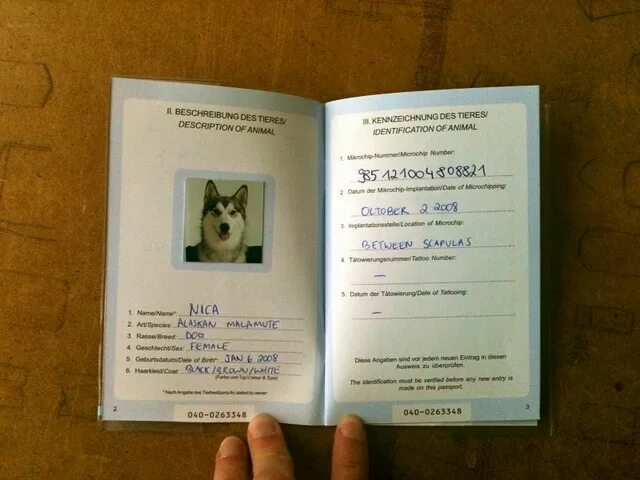 II. BESCHREIBUNG DES TIERES/
DESCRIPTION OF ANIMAL
1. Name/Name* NICA
2. Art/Species: ALASKAN MALAMUTE
3. Rasse/Breed: DOG
4. Geschlecht/Sex: FEMALE
5. Geburtsdatum/Date of Birth*: JAN 6 2008
6. Haarkleid/Coat: BLACK/BROWN/WHITE
(Farbe und Typ/Colour & Type)
* Nach Angabe des Tierbesitzers/As stated by owner
2
040-0263348
III. KENNZEICHNUNG DES TIERES/
IDENTIFICATION OF ANIMAL
1. Mikrochip-Nummer/Microchip Number:
985121004808821
2 Datum der Mikrochip-Implantation/Date of Microchipping:
OCTOBER 2 2008
3. Implantationsstelle/Location of Microchip:
BETWEEN SCAPULAS
4. Tätowierungsnummer/Tattoo Number:
—
5. Datum der Tätowierung/Date of Tattooing:
—
Diese Angaben sind vor jedem neuen Eintrag in diesen
Ausweis zu überprüfen.
The identification must be verified before any new entry is
made on this passport.
040-0263348
3